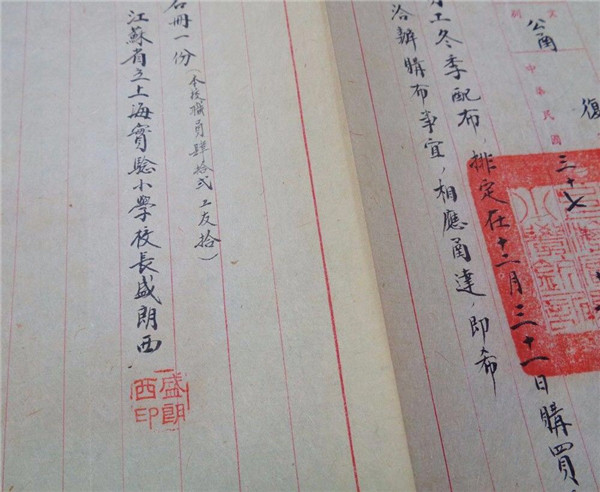 復
文別
公函
中華民國
三十七
工冬季配布，排定在十二月三十一日購買，
洽辦購布事宜，相應函達，即希
名冊一份（本校職員肆拾弍工友拾）
江蘇省立上海實驗小學校長盛朗西
盛朗西印